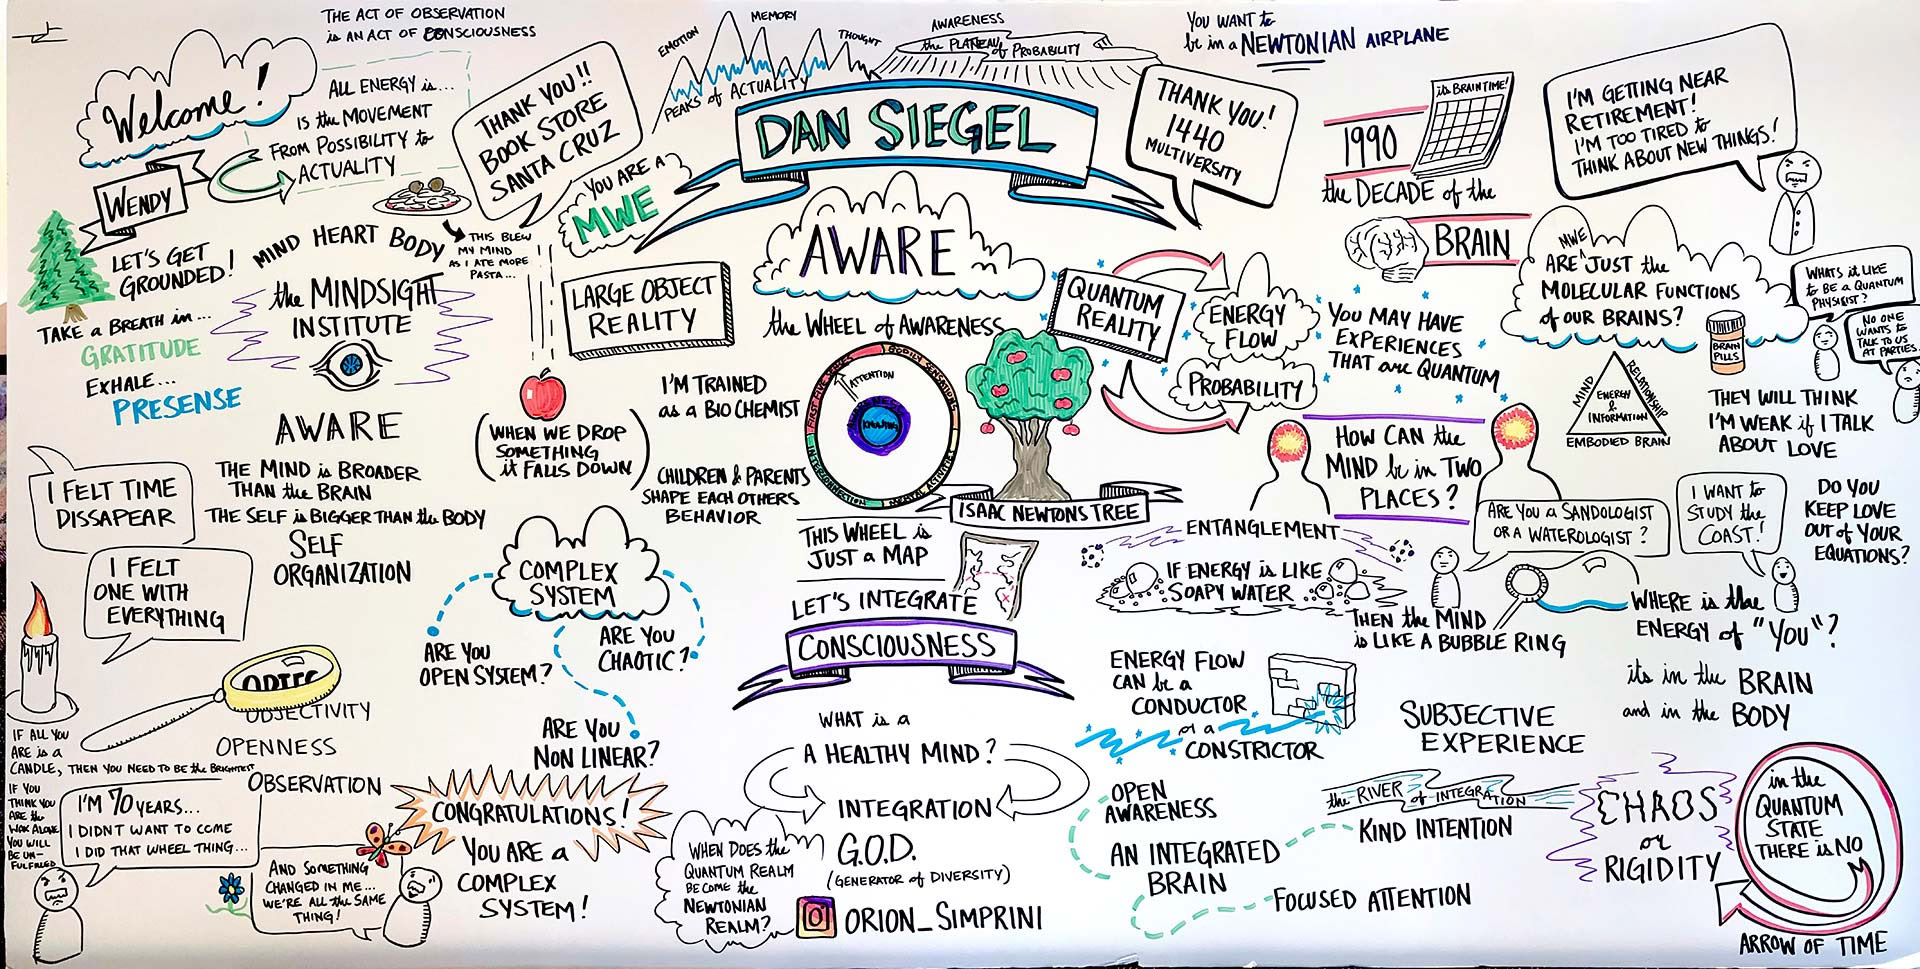 THE ACT OF OBSERVATION
is AN ACT OF CONSCIOUSNESS
Welcome!
ALL ENERGY is...
IS the MOVEMENT
FROM POSSIBILITY to
ACTUALITY
WENDY
LET'S GET
GROUNDED!
TAKE a BREATH in...
GRATITUDE
EXHALE...
PRESENSE
THANK YOU!!
BOOK STORE
SANTA CRUZ
MIND HEART BODY
THIS BLEW
MY MIND
AS I ATE MORE
PASTA...
the MINDSIGHT
INSTITUTE
EMOTION
MEMORY
THOUGHT
PEAKS of ACTUALITY
AWARENESS
the PLATEAU of PROBABILITY
DAN SIEGEL
YOU ARE A
MWE
THANK YOU!
1440
MULTIVERSITY
YOU WANT to
be in a NEWTONIAN AIRPLANE
its BRAIN TIME!
1990
the DECADE of the
BRAIN
I'M GETTING NEAR
RETIREMENT!
I'M TOO TIRED to
THINK ABOUT NEW THINGS!
MWE
ARE JUST the
MOLECULAR FUNCTIONS
of OUR BRAINS?
BRAIN
PILLS
WHATS it LIKE
to BE a QUANTUM
PHYSIGIST?
NO ONE
WANTS to
TALK TO US
AT PARTIES.
LARGE OBJECT
REALITY
AWARE
the WHEEL of AWARENESS
QUANTUM
REALITY
ENERGY
FLOW
PROBABILITY
YOU MAY HAVE
EXPERIENCES
THAT are QUANTUM
MIND
RELATIONSHIP
ENERGY
&
INFORMATION
EMBODIED BRAIN
THEY WILL THINK
I'M WEAK if I TALK
ABOUT LOVE
AWARE
THE MIND is BROADER
THAN the BRAIN
THE SELF is BIGGER THAN the BODY
SELF
ORGANIZATION
(WHEN WE DROP
SOMETHING
it FALLS DOWN)
I'M TRAINED
as a BIO CHEMIST
CHILDREN & PARENTS
SHAPE EACH OTHERS
BEHAVIOR
FIRST FIVE SENSES
BODILY SENSATIONS
MENTAL ACTIVITY
INTERCONNECTION
ATTENTION
AWARENESS
KNOWING
ISAAC NEWTONS TREE
THIS WHEEL is
JUST a MAP
LET'S INTEGRATE
CONSCIOUSNESS
HOW CAN the
MIND be in TWO
PLACES?
ENTANGLEMENT
IF ENERGY is LIKE
SOAPY WATER
THEN the MIND
is LIKE a BUBBLE RING
ARE YOU a SANDOLOGIST
OR a WATEROLOGIST?
I WANT to
STUDY the
COAST!
DO YOU
KEEP LOVE
OUT of YOUR
EQUATIONS?
WHERE is the
ENERGY of "YOU"?
its in the BRAIN
and in the BODY
I FELT TIME
DISSAPEAR
I FELT
ONE WITH
EVERYTHING
COMPLEX
SYSTEM
ARE YOU
OPEN SYSTEM?
ARE YOU
CHAOTIC?
ARE YOU
NON LINEAR?
OBJECTIVITY
OPENNESS
OBSERVATION
IF ALL YOU
ARE is a
CANDLE, THEN YOU NEED to BE the BRIGHTEST
IF YOU
THINK YOU
ARE the
WAX ALONE
YOU WILL
BE UN-
FULFILLED
I'M 70 YEARS...
I DIDNT WANT to COME
I DID THAT WHEEL THING...
AND SOMETHING
CHANGED IN ME...
WE'RE ALL the SAME
THING!
CONGRATULATIONS!
YOU ARE a
COMPLEX
SYSTEM!
WHAT is a
A HEALTHY MIND?
INTEGRATION
G.O.D.
(GENERATOR of DIVERSITY)
WHEN DOES the
QUANTUM REALM
BECOME the
NEWTONIAN
REALM?
ORION_SIMPRINI
ENERGY FLOW
CAN be a
CONDUCTOR
or a
CONSTRICTOR
SUBJECTIVE
EXPERIENCE
OPEN
AWARENESS
the RIVER of INTEGRATION
KIND INTENTION
AN INTEGRATED
BRAIN
FOCUSED ATTENTION
CHAOS
or
RIGIDITY
in the
QUANTUM
STATE
THERE is NO
ARROW OF TIME